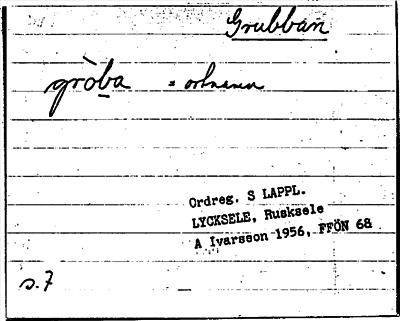 Grubban
gròba = ortnamn
Ordreg. S LAPPL.
LYCKSELE, Rusksele
A Ivarsson 1956, FFÖN 68
s. 7